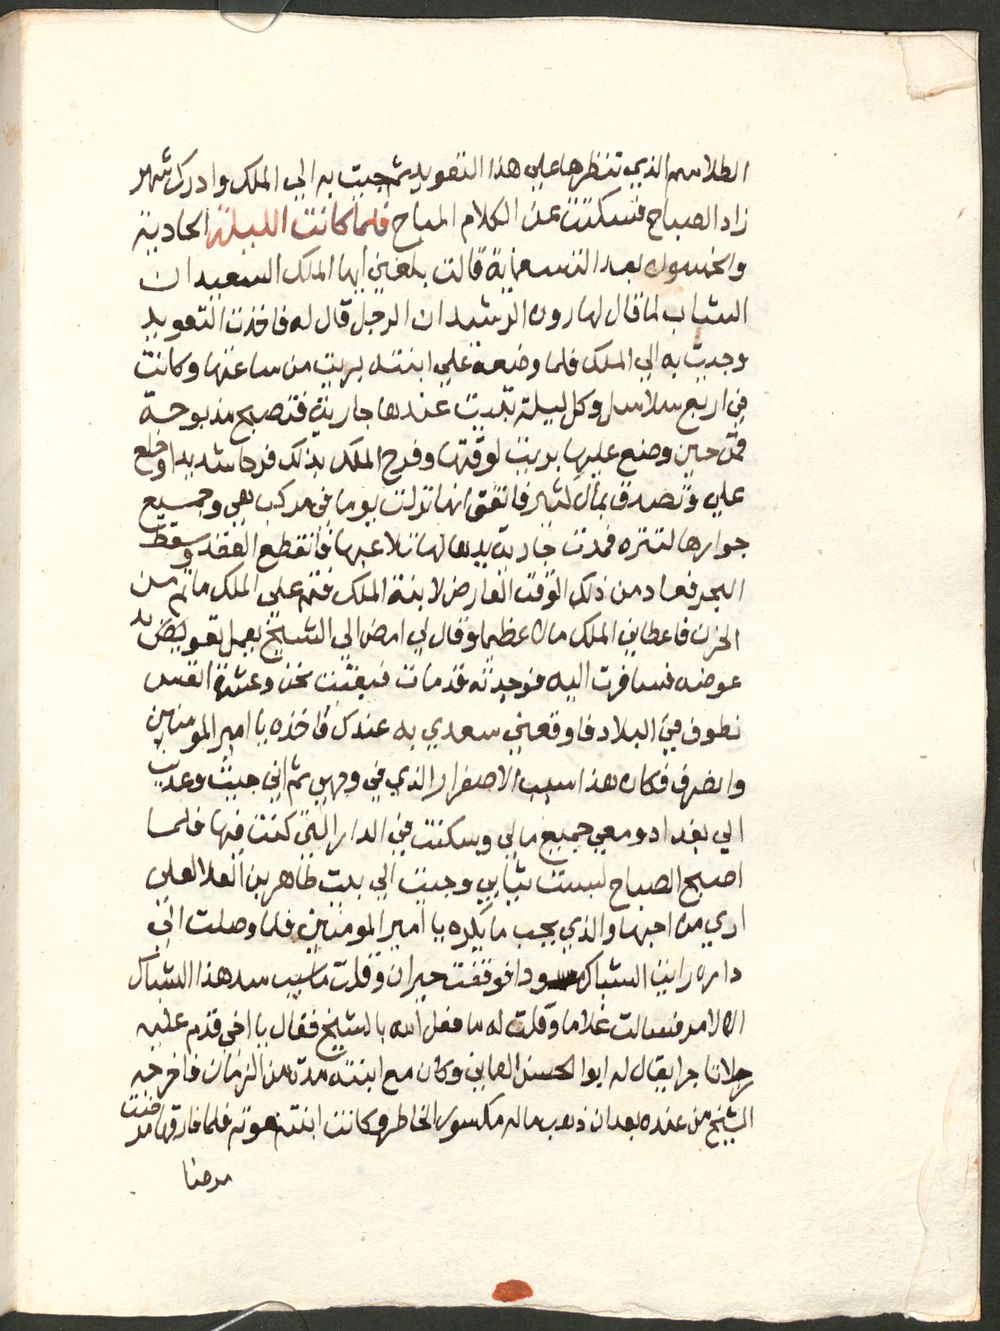 الطلاسم الذي تنظرها علي هذا التعويد ثم جيت به الي الملك وادرك شهر
زاد الصباح فسكتت عن الكلام المباح فلما كانت الليلة الحادية
والخمسون بعد التسعماية قالت بلغني ايها الملك السعيد ان
الشاب لما قال لهارون الرشيد ان الرجل قال له فاخذت التعويد
وجيت به الي الملك فلما وضعه علي ابنته بريت من ساعتها وكانت
في اربع سلاسل وكل ليلة تبيت عندها جارية فتصبح مذبوحة
فمن حين وضع عليها بريت لوقتها وفرح الملك بذلك فرحا شديدا وخلع
علي وتصدق بمال كثير فاتفق انها نزلت يوما في مركب هي وجميع
جوارها لتتنزه فمدت جارية يدها لها تلاعبها فانقطع العقد وسقط
البحر فعاد من ذلك الوقت العارض لابنة الملك فتم علي الملك ما تم من
الحزن فاعطاني الملك مالا عظيما وقال لي امض الي الشيخ يعمل تعويد
عوضه فسافرت اليه فوجدته قد مات فبعثت نحن وعشرة انفس
نطوف في البلاد فاوقعني سعدي به عندك فاخذه يا امير المومنين
وانصرف فكان هذا سبب الاصفرار الذي في وجهي ثم اني جيت وعديت
الي بغداد ومعي جميع مالي وسكنت في الدار التي كنت فيها فلما
اصبح الصباح لبست ثيابي وجيت الي بيت طاهر بن العلا لعلي
اري من احبها والذي يحب ما يكره يا امير المومنين فلما وصلت الي
داره رايت الشباك سدودا فوقفت حيران وقلت ما سبب سد هذا الشباك
الا لامر فسالت غلاما وقلت له ما فعل الله بالشيخ فقال يا اخي قدم عليه
رجلا تاجرا يقال له ابوا الحسن العماني وكان مع ابنته مدة من الزمان فاخرجه
الشيخ من عنده بعد ان ذهب ماله مكسور الخاطر وكانت ابنته فلما فارقها مرضت
مرضا